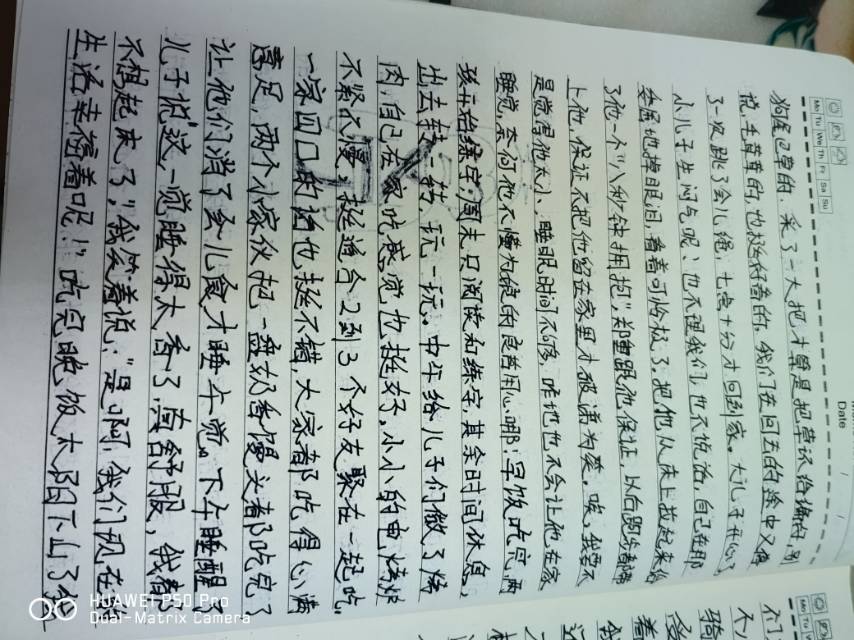 Mo Tu We Th Fr Sa Su
Date
狗尾巴草的,采了一大把才算是把草识给编好,别
说,毛茸茸的,也挺好看的,我们在回去的途中又停
了一次跳了会儿绳,七点十分才回到家。大儿子开心了,
小儿子生闷气呢、也不理我们,也不说话,自己在那
委屈地掉眼泪,看着可怜极了。把他从床上拉起来给
了他一个"八秒钟拥抱"郑重跟他保证,以后跑步都带
上他,保证不把他留在家里才破涕为笑。唉,我要不
是觉得他太小、睡眠时间不够,咋地也不会让他在家
睡觉,奈何他不懂为娘的良苦用心哪!早饭吃完,两
孩开始练字,周末只阅读和练字,其余时间休息,
出去转一转,玩一玩。中午给儿子们做了烤
肉,自己在家吃感觉也挺好,小小的电烤炉
不紧不慢,挺适合2到3个好友聚在一起吃,
一家四口的话也挺不错,大家都吃得心满
意足,两个小家伙把一盘奶香馒头都吃完了
让他们消了会儿食才睡午觉。下午睡醒
儿子说"这一觉睡得太香了,真舒服,我都
不想起床了,"我笑着说:"是啊,我们现在的
生活幸福着呢!"吃完晚饭太阳下山了
HUAWEI P50 Pro
Dual-Matrix Camera
Mo Tu